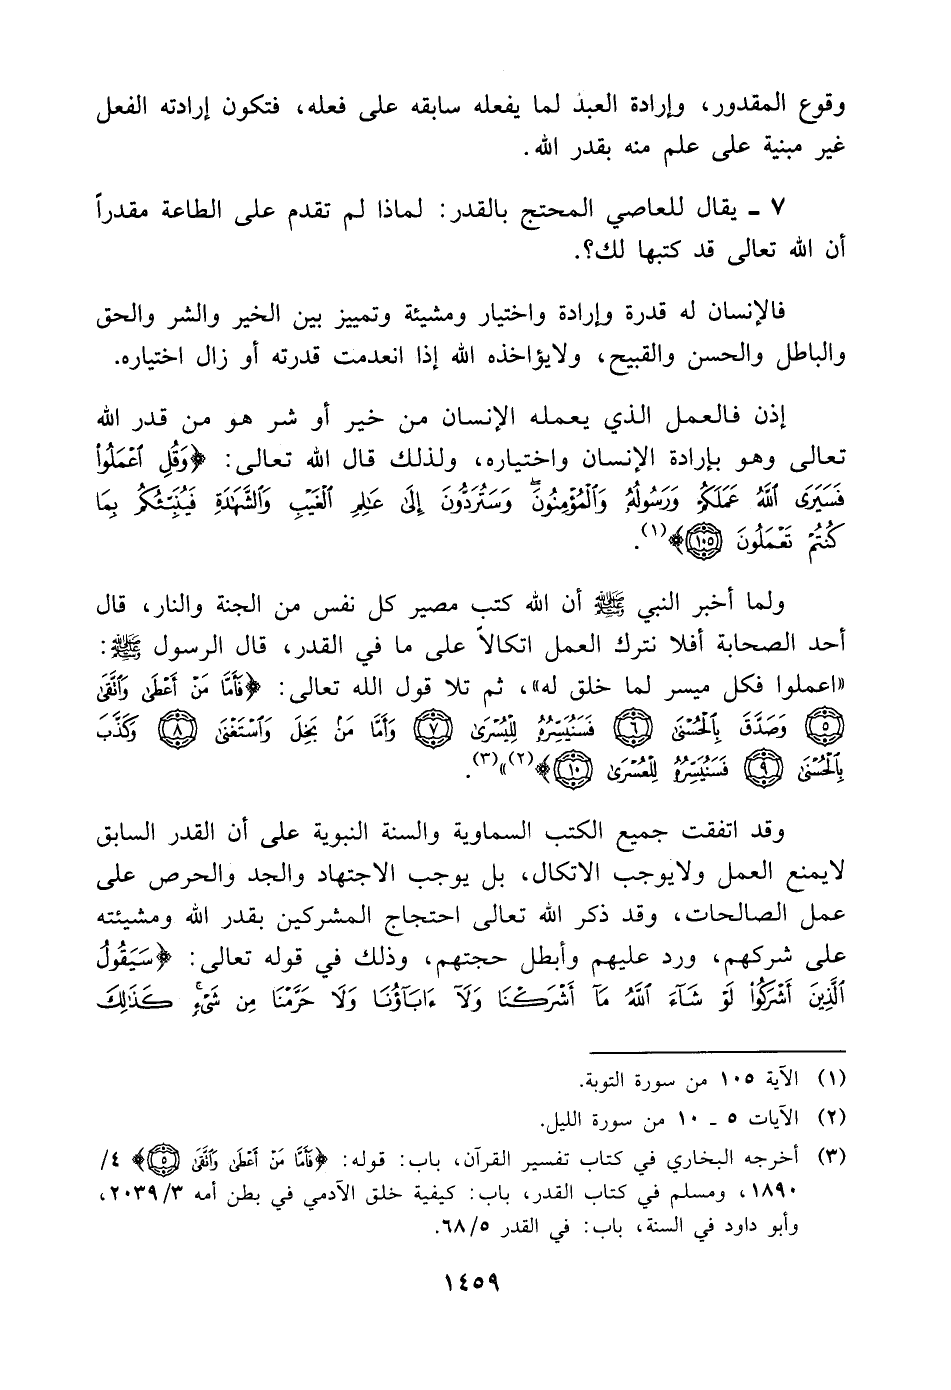 وقوع المقدور، وإرادة العبد لما يفعله سابقه على فعله، فتكون إرادته الفعل
غير مبنية على علم منه بقدر الله.
٧ ـ يقال للعاصي المحتج بالقدر: لماذا لم تقدم على الطاعة مقدراً
أن الله تعالى قد كتبها لك؟.
فالإنسان له قدرة وإرادة واختيار ومشيئة وتمييز بين الخير والشر والحق
والباطل والحسن والقبيح، ولايؤاخذه الله إذا انعدمت قدرته أو زال اختياره.
إذن فالعمل الذي يعمله الإنسان من خير أو شر هو من قدر الله
تعالى وهو بإرادة الإنسان واختياره، ولذلك قال الله تعالى: ﴿وَقُلِ ٱعْمَلُوا۟
فَسَيَرَى ٱللَّهُ عَمَلَكُمْ وَرَسُولُهُۥ وَٱلْمُؤْمِنُونَۖ وَسَتُرَدُّونَ إِلَىٰ عَٰلِمِ ٱلْغَيْبِ وَٱلشَّهَٰدَةِ فَيُنَبِّئُكُم بِمَا
كُنتُمْ تَعْمَلُونَ ١٠٥﴾(١).
ولما أخبر النبي ﷺ أن الله كتب مصير كل نفس من الجنة والنار، قال
أحد الصحابة أفلا نترك العمل اتكالاً على ما في القدر، قال الرسول ﷺ:
«اعملوا فكل ميسر لما خلق له»، ثم تلا قول الله تعالى: ﴿فَأَمَّا مَنْ أَعْطَىٰ وَٱتَّقَىٰ
٥ وَصَدَّقَ بِٱلْحُسْنَىٰ ٦ فَسَنُيَسِّرُهُۥ لِلْيُسْرَىٰ ٧ وَأَمَّا مَنۢ بَخِلَ وَٱسْتَغْنَىٰ ٨ وَكَذَّبَ
بِٱلْحُسْنَىٰ ٩ فَسَنُيَسِّرُهُۥ لِلْعُسْرَىٰ ١٠﴾(٢)»(٣).
وقد اتفقت جميع الكتب السماوية والسنة النبوية على أن القدر السابق
لايمنع العمل ولايوجب الاتكال، بل يوجب الاجتهاد والجد والحرص على
عمل الصالحات، وقد ذكر الله تعالى احتجاج المشركين بقدر الله ومشيئته
على شركهم، ورد عليهم وأبطل حجتهم، وذلك في قوله تعالى: ﴿سَيَقُولُ
ٱلَّذِينَ أَشْرَكُوا۟ لَوْ شَآءَ ٱللَّهُ مَآ أَشْرَكْنَا وَلَآ ءَابَآؤُنَا وَلَا حَرَّمْنَا مِن شَىْءٍۚ كَذَٰلِكَ
(١) الآية ١٠٥ من سورة التوبة.
(٢) الآيات ٥ ـ ١٠ من سورة الليل.
(٣) أخرجه البخاري في كتاب تفسير القرآن، باب: قوله: ﴿فَأَمَّا مَنْ أَعْطَىٰ وَٱتَّقَىٰ ٥﴾ ٤/
١٨٩٠، ومسلم في كتاب القدر، باب: كيفية خلق الآدمي في بطن أمه ٢٠٣٩/٣،
وأبو داود في السنة، باب: في القدر ٦٨/٥.
١٤٥٩